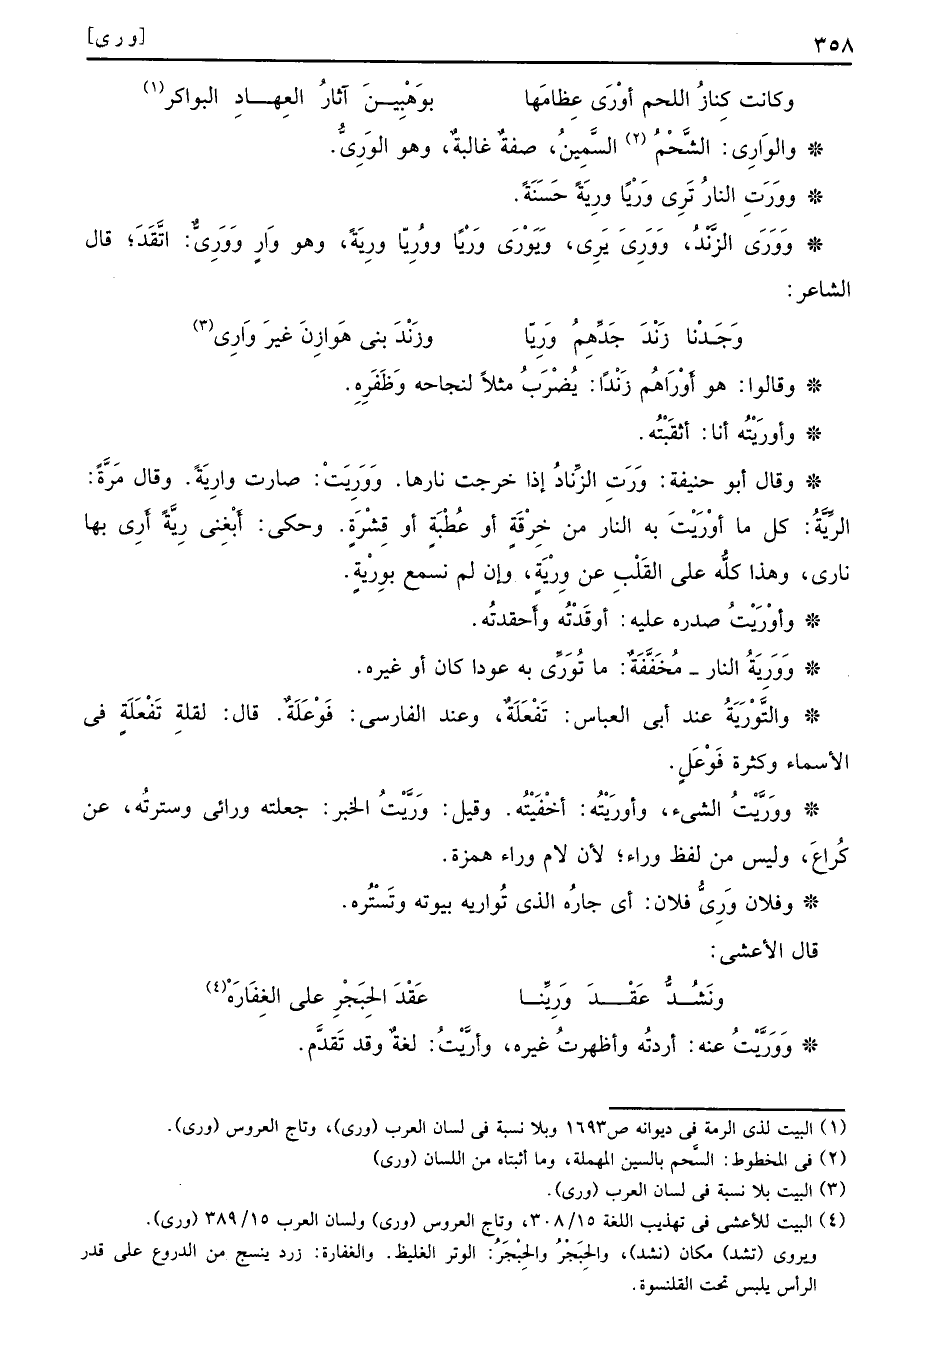 ٣٥٨ [و ر ى]
وكانت كِنازُ اللحم أوْرَى عِظامَها بوَهْبِيـنَ آثارُ العِهـاد البواكر(١)
* والوَارِى: الشَّحْمُ (٢) السَّمِينُ، صفةٌ غالبةٌ، وهو الوَرِىُّ.
* ووَرَتِ النارُ تَرِى وَرْيًا وريَةً حَسَنَةً.
* وَوَرَى الزَّنْدُ، وَوَرِىَ يَرِى، وَيَوْرَى وَرْيًا ووُرِيّا وريةً، وهو وَارٍ وَوَرِىٌّ: اتَّقَدَ؛ قال
الشاعر:
وَجَـدْنا زَنْدَ جَدِّهِمُ وَرِيّا وزَنْدَ بنى هَوازِنَ غيرَ وَارِى(٣)
* وقالوا: هو أَوْرَاهُم زَنْدًا: يُضْرَبُ مثلاً لنجاحه وَظَفَرِه.
* وأورَيْتُه أنا: أثقَبْتُه.
* وقال أبو حنيفة: وَرَتِ الزِّنادُ إذا خرجت نارها. وَوَرِيَتْ: صارت واريَةً. وقال مَرَّةً:
الرِّيَّةُ: كل ما أوْرَيْتَ به النار من خِرْقَةٍ أو عُطْبَةٍ أو قِشْرَةٍ. وحكى: أَبْغِنى رِيَّةً أَرِى بها
نارى، وهذا كلُّه على القَلْبِ عن وِرْيَةٍ، وإن لم نسمع بوِرْيْةٍ.
* وأوْرَيْتُ صدره عليه: أوقَدْتُه وأحقدتُه.
* وَوَرِيَةُ النار - مُخَفَّفَةٌ: ما تُوَرَّى به عودا كان أو غيره.
* والتَّوْرَيَةُ عند أبى العباس: تَفْعَلَةٌ، وعند الفارسى: فَوْعَلَةٌ. قال: لقلةِ تَفْعَلَةٍ فى
الأسماء وكثرة فَوْعَلٍ.
* ووَرَّيْتُ الشىء، وأورَيْتُه: أخْفَيْتُه. وقيل: وَرَّيْتُ الخبر: جعلته ورائى وسترتُه، عن
كُراعَ، وليس من لفظ وراء؛ لأن لام وراء همزة.
* وفلان وَرِىُّ فلان: أى جارُه الذى تُواريه بيوته وتَسْتُره.
قال الأعشى:
ونَشُـدُّ عَقْـدَ وَرِيِّنـا عَقْدَ الحِبَجْرِ على الغِفَارَهْ(٤)
* وَوَرَّيْتُ عنه: أردتُه وأظهرتُ غيره، وأرَّيْتُ: لغةٌ وقد تَقدَّم.
(١) البيت لذى الرمة فى ديوانه ص١٦٩٣ وبلا نسبة فى لسان العرب (ورى)، وتاج العروس (ورى).
(٢) فى المخطوط: السَّحم بالسين المهملة، وما أثبتاه من اللسان (ورى)
(٣) البيت بلا نسبة فى لسان العرب (ورى).
(٤) البيت للأعشى فى تهذيب اللغة ٣٠٨/١٥، وتاج العروس (ورى) ولسان العرب ٣٨٩/١٥ (ورى).
ويروى (تشد) مكان (نشد)، والحِبَجْرُ والحِبْجَرُ: الوتر الغليظ. والغفارة: زرد ينسج من الدروع على قدر
الرأس يلبس تحت القلنسوة.